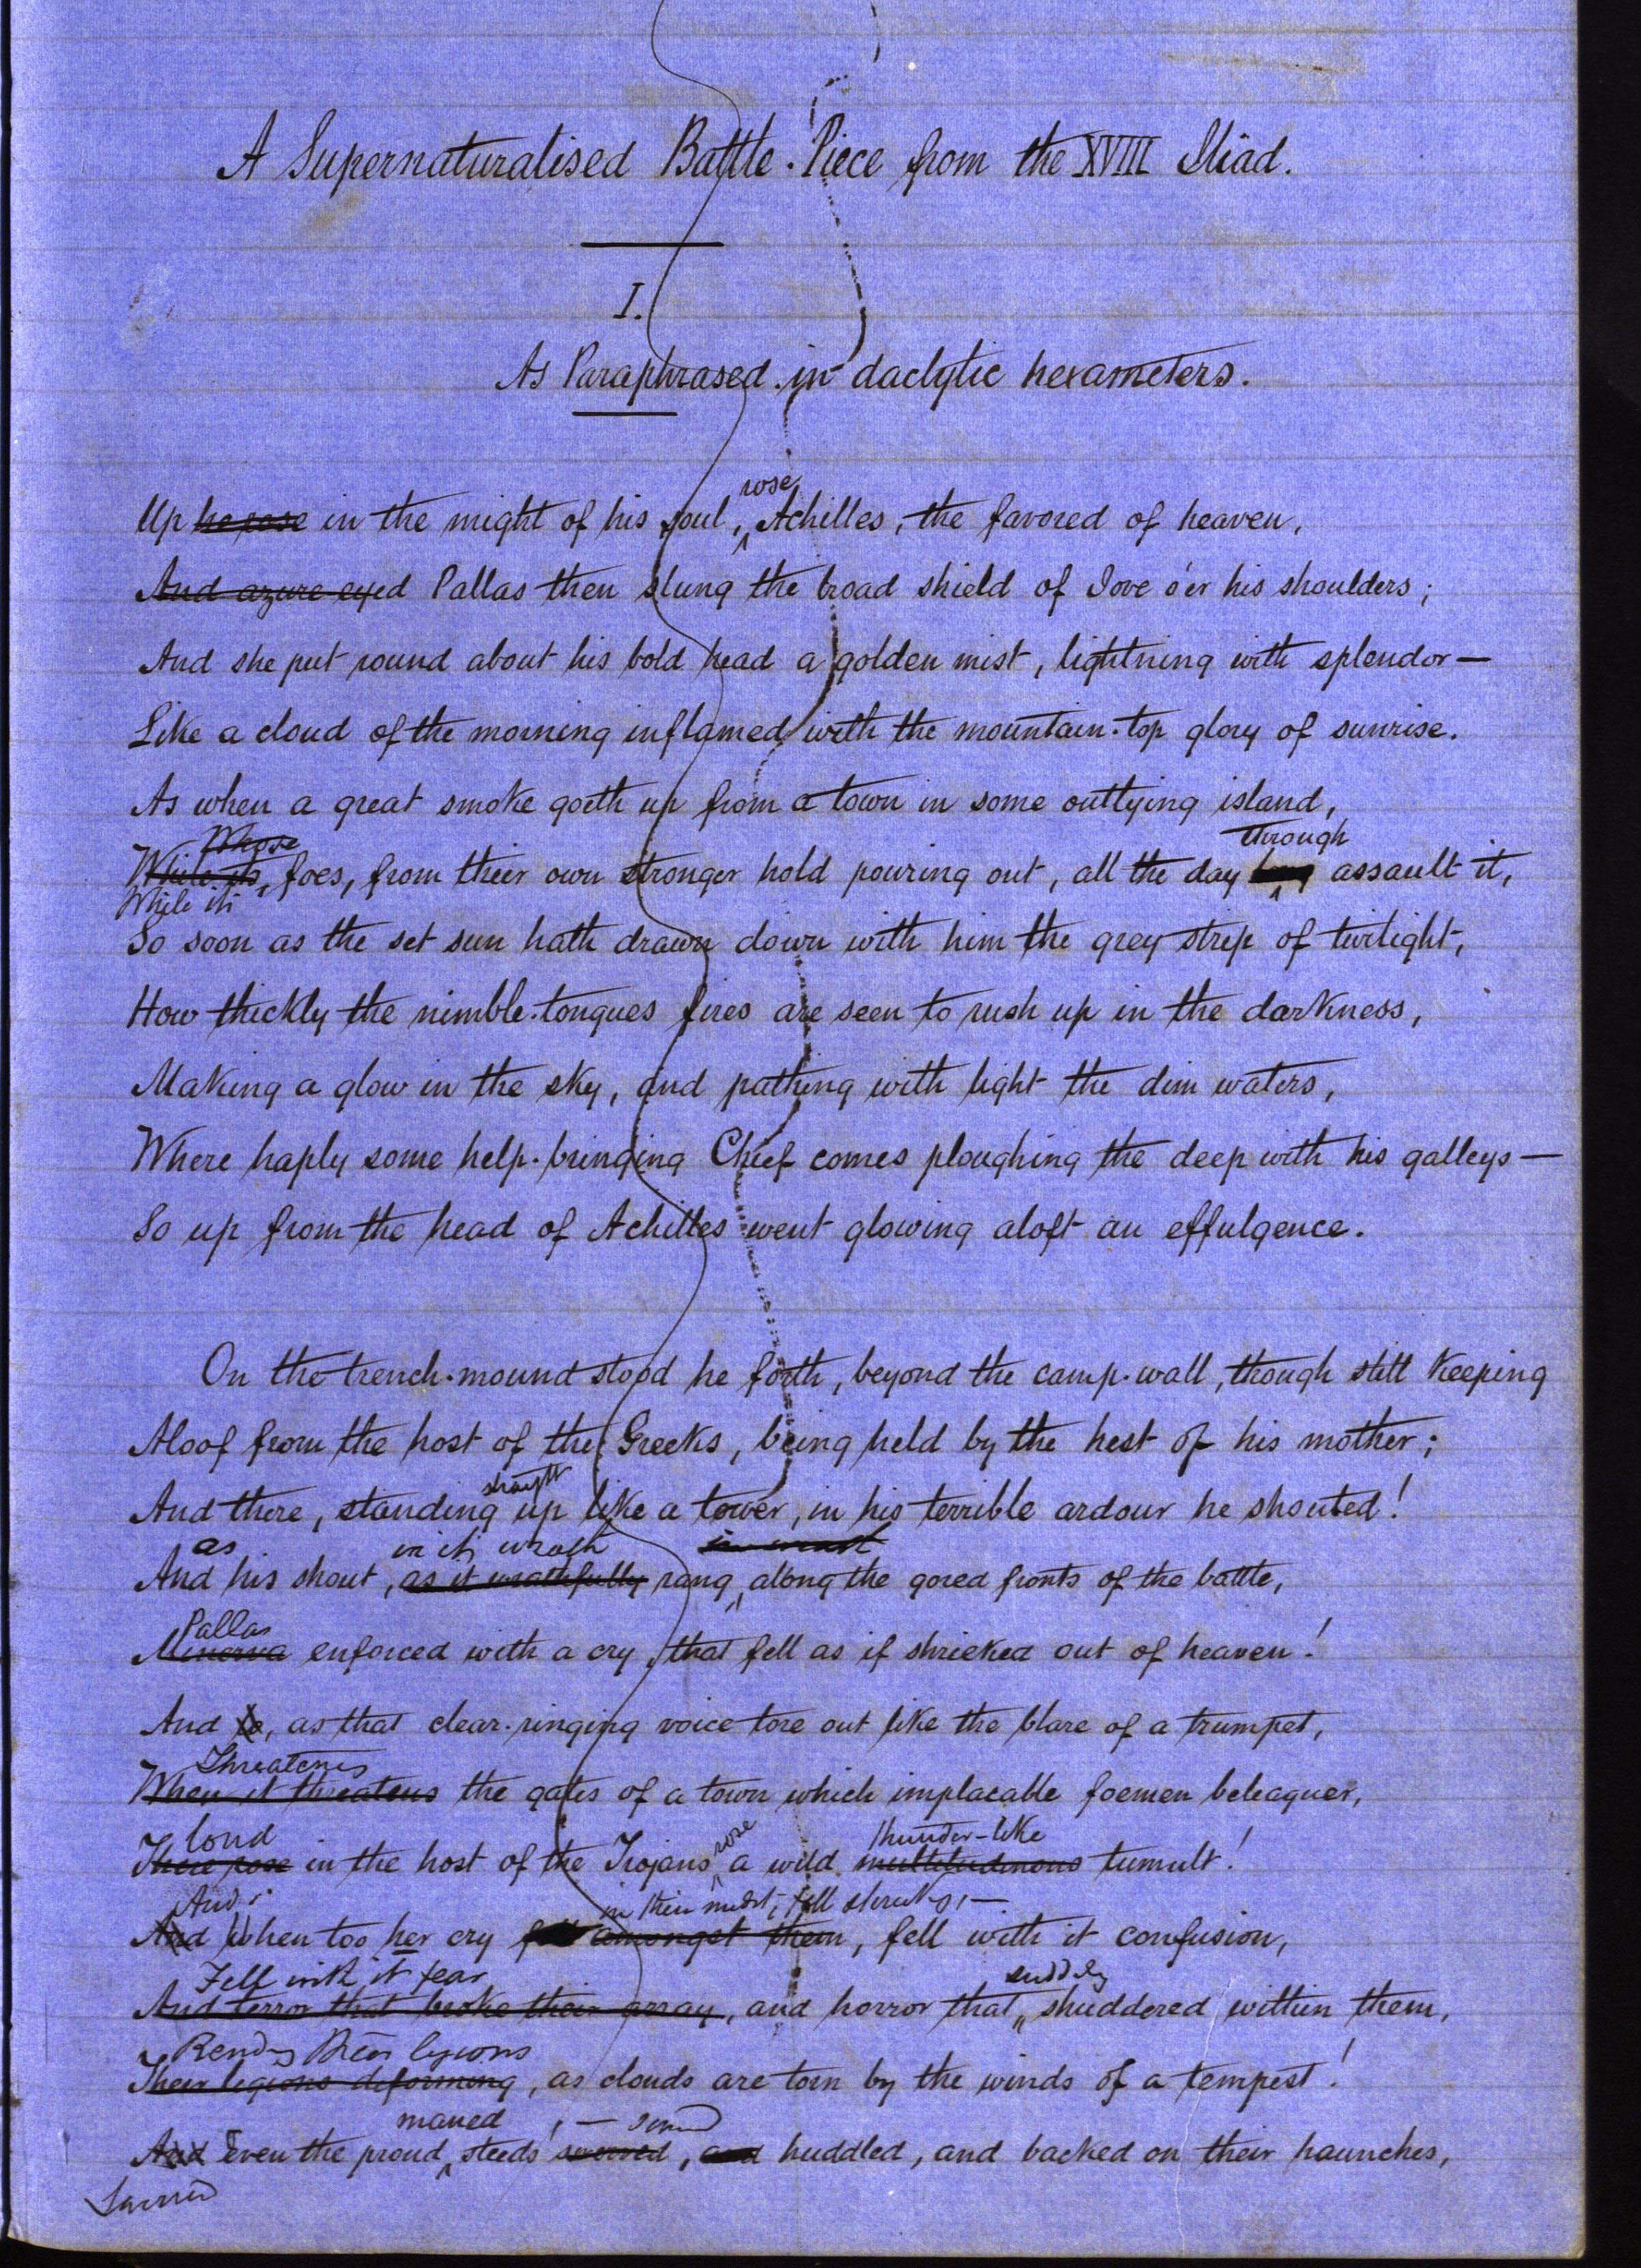 A Supernaturalised Battle-Piece from the XVIII Iliad.
I.
As Paraphrased in daclytic hexameters.
rose
Up he rose in the might of his soul, Achilles, the favored of heaven,
And azure-eyed Pallas then slung the broad shield of Jove o'er his shoulders;
And she put round about his bold head a golden mist, lightning with splendor—
Like a cloud of the morning inflamed with the mountain-top glory of sunrise.
As when a great smoke goeth up from a town in some outlying island,
Whose through
While its, foes, from their own stronger hold pouring out, all the day long assault it,
While its
So soon as the set sun hath drawn down with him the grey strip of twilight,
How thickly the nimble-tongues fires are seen to rush up in the darkness,
Making a glow in the sky, and pathing with light the dim waters,
Where haply some help-bringing Chief comes ploughing the deep with his galleys—
So up from the head of Achilles went glowing aloft an effulgence.
On the trench-mound stood he forth, beyond the camp-wall, though still keeping
Aloof from the host of the Greeks, being held by the hest of his mother;
straight
And there, standing up like a tower, in his terrible ardour he shouted!
as in its wrath
And his shout, as it wrathfully rang, along the gored fronts of the battle,
Pallas
Minerva enforced with a cry, that fell as if shrieked out of heaven!
And lo, as that clear-ringing voice tore out like the blare of a trumpet,
Threatening
When it threatens the gates of a town which implacable foemen beleaguer,
loud rose thunder-like
There rose in the host of the Trojans a wild multitudinous tumult!
And in their midst, fell shrieking,—
And When too her cry fell amongst them, fell with it confusion,
Fell with it fear suddenly
And terror that broke their array, and horror that shuddered within them,
Rending their legions
Their legions deforming, as clouds are torn by the winds of a tempest!
maned ,—
And Even the proud steeds swerved, and huddled, and backed on their haunches,